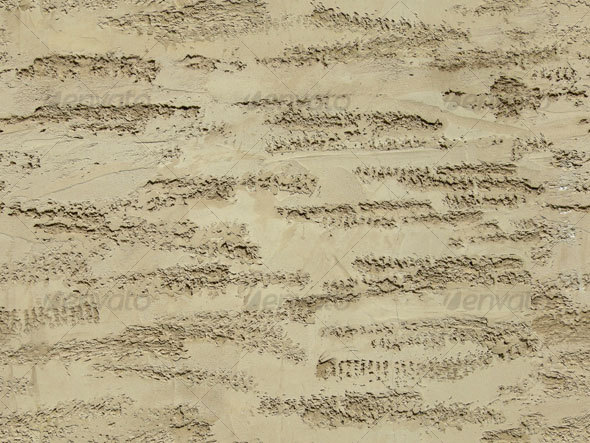 envato envato envato
envato envato envato